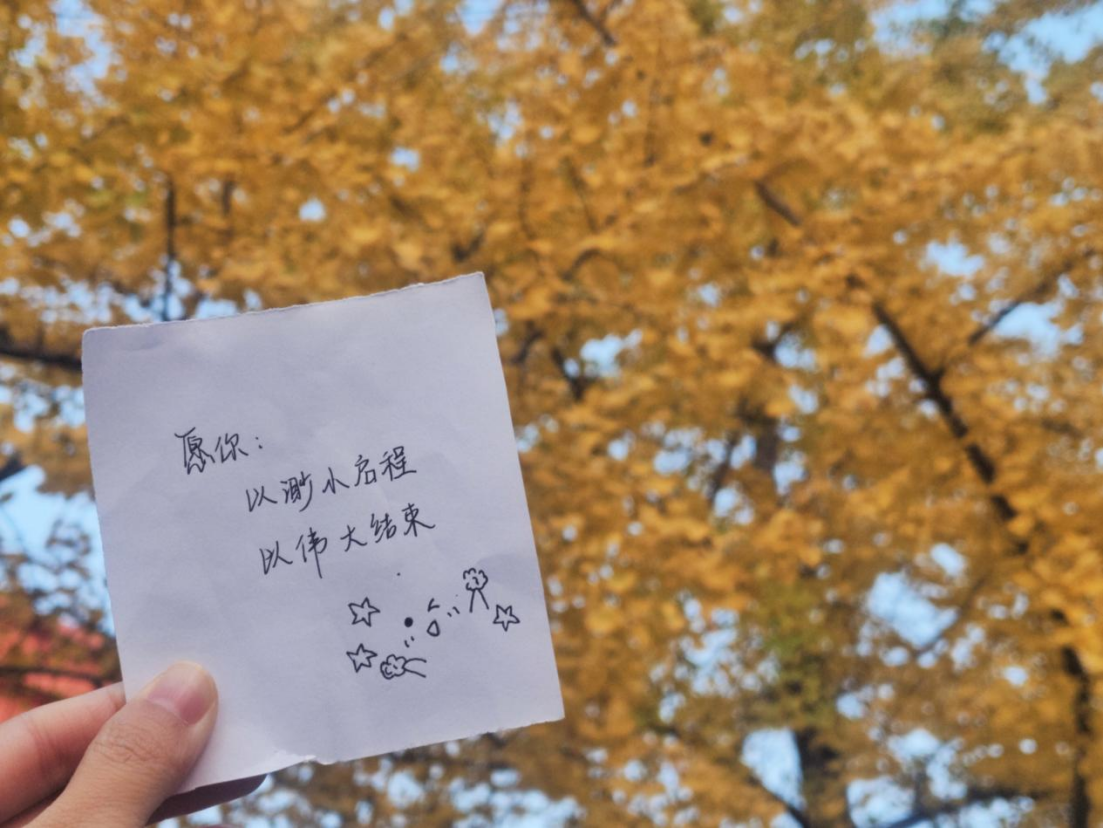 愿你：
以渺小启程
以伟大结束